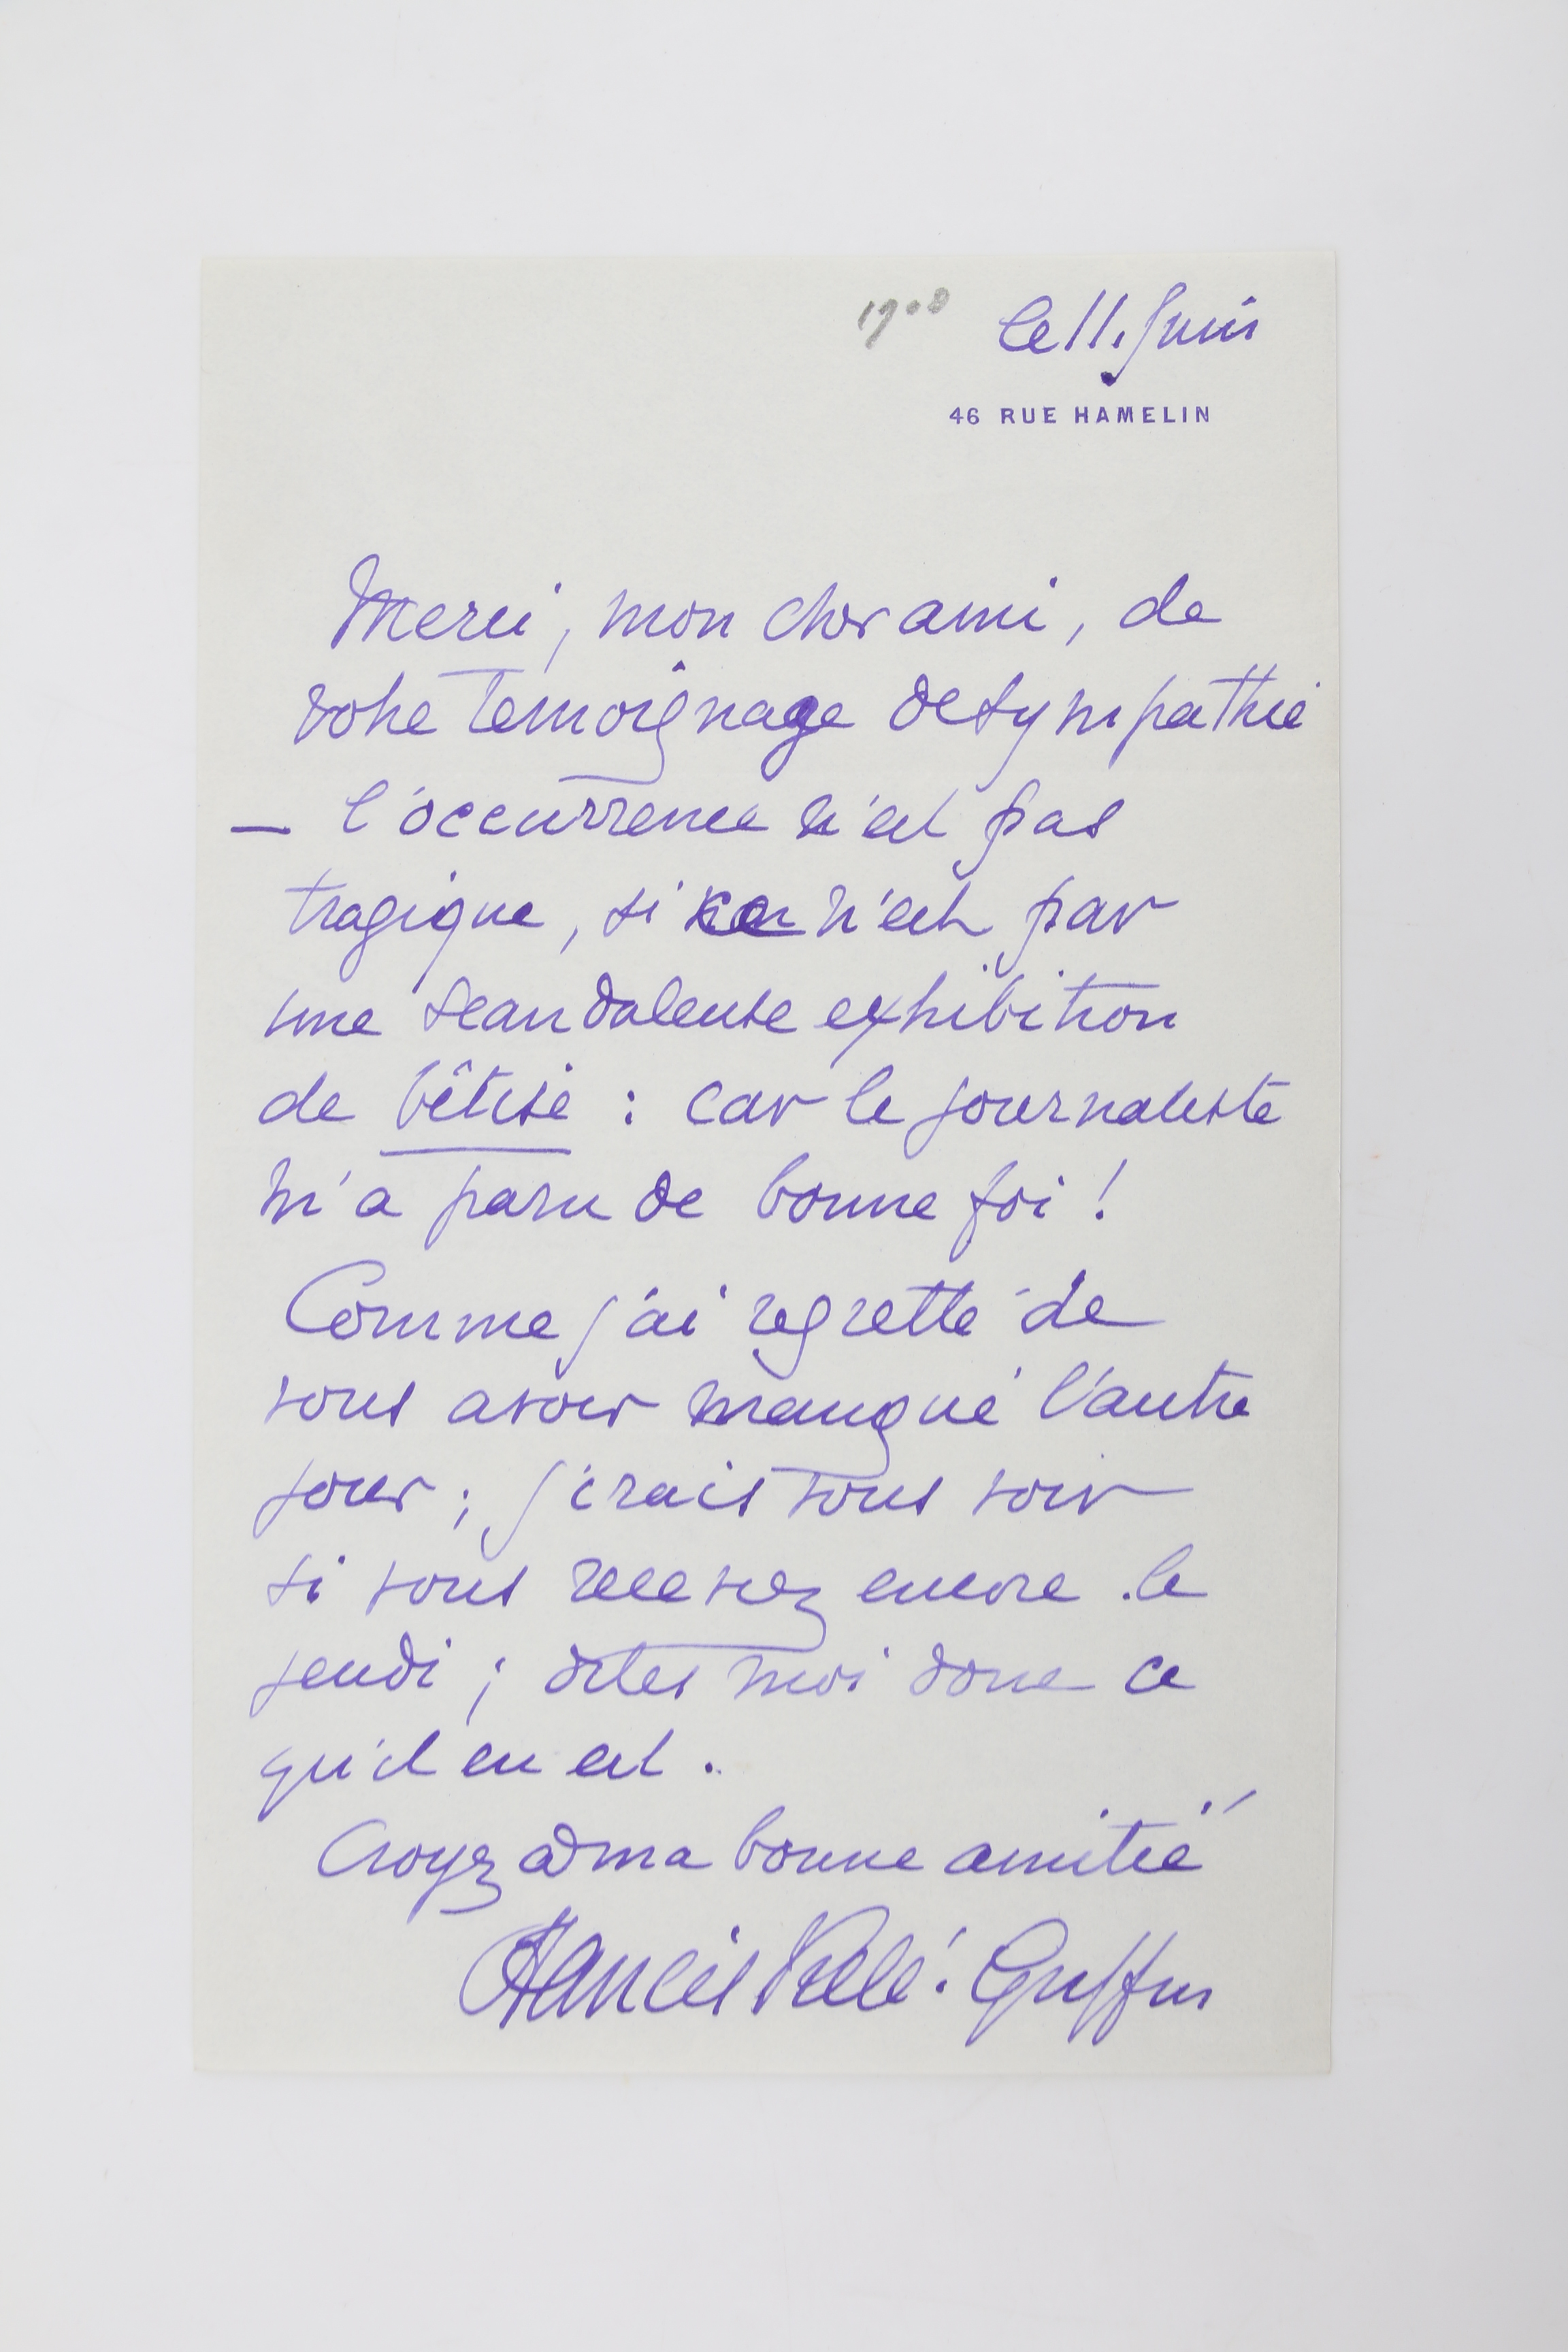 1908 le 11. Juin
46 RUE HAMELIN
Merci, mon cher ami, de
votre témoignage de sympathie
— l'occurrence n'est pas
tragique, si ce n'est par
une scandaleuse exhibition
de bêtise : car le journaliste
m'a paru de bonne foi !
Comme j'ai regretté de
vous avoir manqué l'autre
jour ; j'irais vous voir
si vous recevez encore le
jeudi ; dites moi donc ce
qu'il en est .
Croyez à ma bonne amitié
Francis Vielé-Griffin